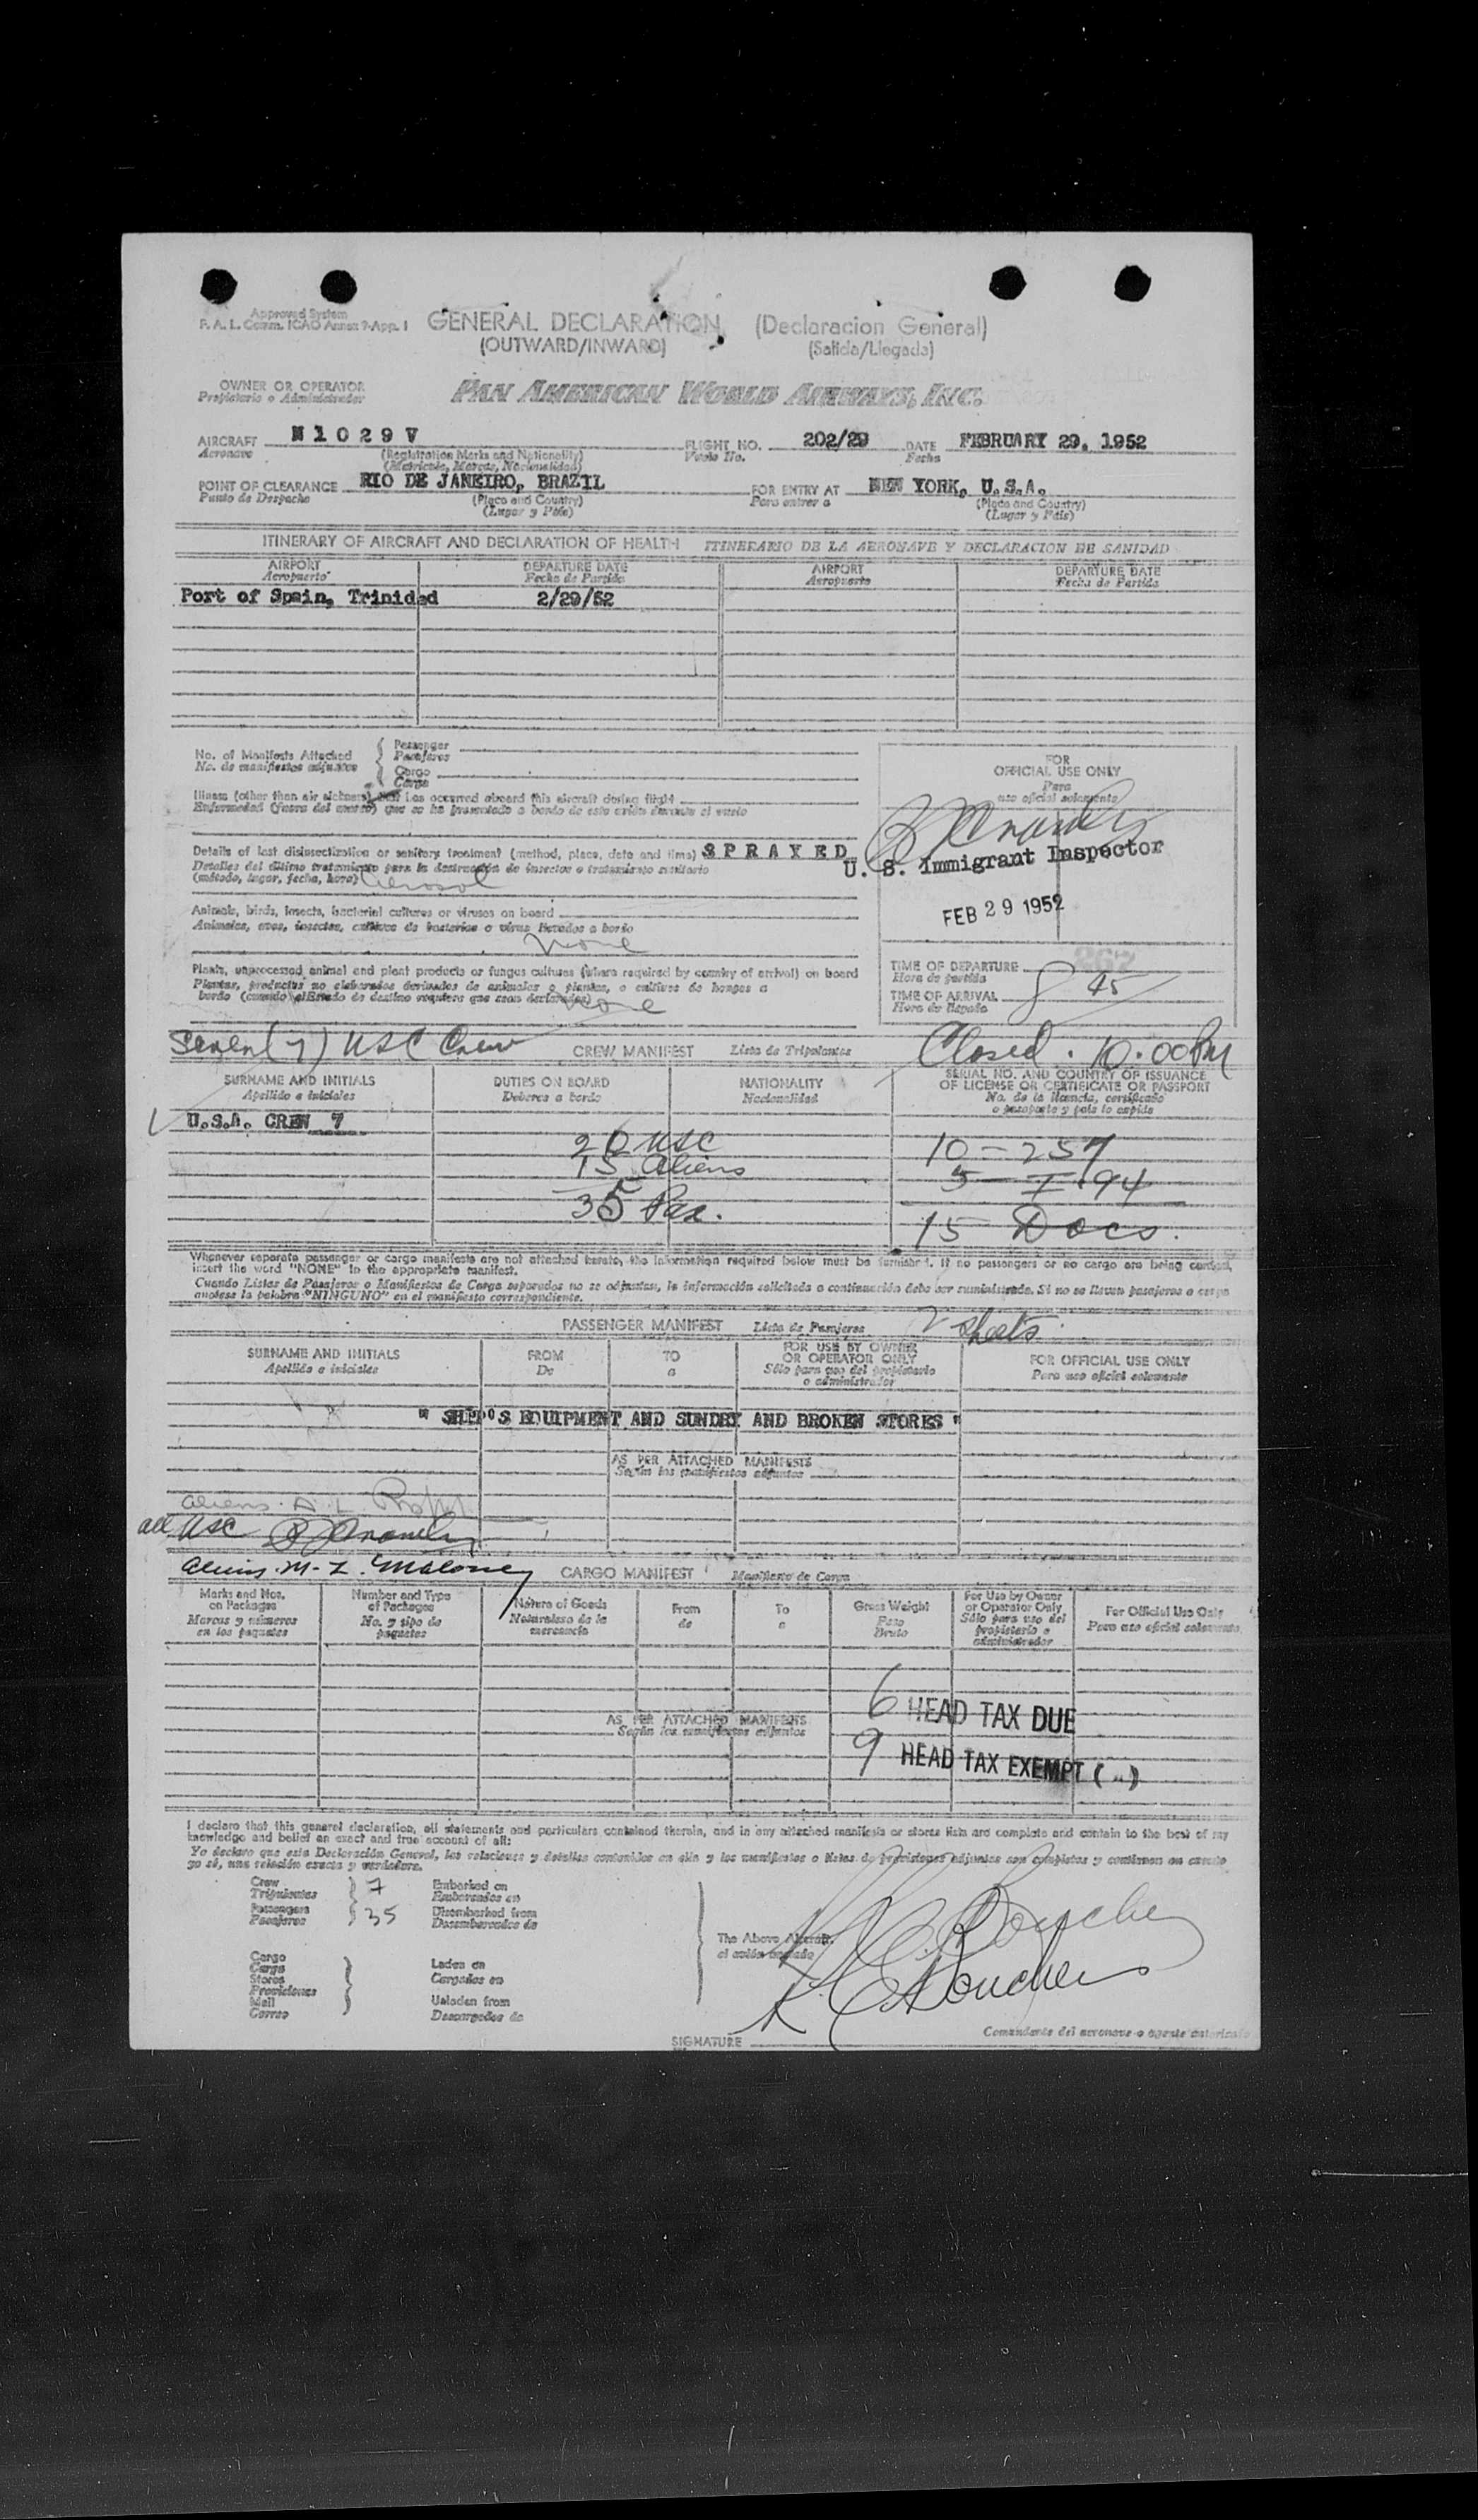 Approved System
F. A. L. Comm. ICAO Annex 9-App. 1
GENERAL DECLARATION (Declaracion General)
(OUTWARD/INWARD) (Salida/Llegada)
OWNER OR OPERATOR
Propietario o Administrador
PAN AMERICAN WORLD AIRWAYS, INC.
AIRCRAFT N1029V FLIGHT NO. 202/29 DATE FEBRUARY 29, 1952
Aeronave (Registration Marks and Nationality) Vuelo No. Fecha
(Matricula, Marcas, Nacionalidad)
POINT OF CLEARANCE RIO DE JANEIRO, BRAZIL FOR ENTRY AT NEW YORK, U.S.A.
Punto de Despacho (Place and Country) Para entrar a (Place and Country)
(Lugar y País) (Lugar y País)
ITINERARY OF AIRCRAFT AND DECLARATION OF HEALTH ITINERARIO DE LA AERONAVE Y DECLARACION DE SANIDAD
AIRPORT DEPARTURE DATE AIRPORT DEPARTURE DATE
Aeropuerto Fecha de Partida Aeropuerto Fecha de Partida
Port of Spain, Trinidad 2/29/52
No. of Manifests Attached
No. de manifiestos adjuntos
Passenger
Pasajeros
Cargo
Carga
FOR
OFFICIAL USE ONLY
Para
uso oficial solamente
Illness (other than air sickness) has occurred aboard this aircraft during flight
Enfermedad (fuera del mareo) que se ha presentado a bordo de este avión durante el vuelo
U. S. Immigrant Inspector
FEB 29 1952
Details of last disinsectization or sanitary treatment (method, place, date and time) SPRAYED
Detalles del último tratamiento para la destrucción de insectos o tratamiento sanitario
(método, lugar, fecha, hora) Aerosol
Animals, birds, insects, bacterial cultures or viruses on board
Animales, aves, insectos, cultivos de bacterias o virus llevados a bordo
None
Plants, unprocessed animal and plant products or fungus cultures (where required by country of arrival) on board
Plantas, productos no elaborados derivados de animales o plantas, o cultivos de hongos a
bordo (cuando el Estado de destino requiere que sean declarados) None
TIME OF DEPARTURE
Hora de partida
TIME OF ARRIVAL 8 45
Hora de llegada
Seven (7) USC Crew CREW MANIFEST Lista de Tripulantes Closed. 10:00 PM
SURNAME AND INITIALS DUTIES ON BOARD NATIONALITY SERIAL NO. AND COUNTRY OF ISSUANCE
OF LICENSE OR CERTIFICATE OR PASSPORT
Apellido e iniciales Deberes a bordo Nacionalidad No. de la licencia, certificado
o pasaporte y país lo expide
U.S.A. CREW 7
20 USC 10 - 257
15 Aliens 5 - I 94
35 Pax. 15 Docs.
Whenever separate passenger or cargo manifests are not attached hereto, the information required below must be furnished. If no passengers or no cargo are being carried,
insert the word "NONE" in the appropriate manifest.
Cuando Listas de Pasajeros o Manifiestos de Carga separados no se adjuntan, la información solicitada a continuación debe ser suministrada. Si no se llevan pasajeros o carga
anotese la palabra "NINGUNO" en el manifiesto correspondiente.
PASSENGER MANIFEST Lista de Pasajeros 2 sheets
SURNAME AND INITIALS FROM TO FOR USE BY OWNER
OR OPERATOR ONLY FOR OFFICIAL USE ONLY
Apellido e iniciales De a Sólo para uso del propietario
o administrador Para uso oficial solamente
" SHIP'S EQUIPMENT AND SUNDRY AND BROKEN STORES "
AS PER ATTACHED MANIFESTS
Según los manifiestos adjuntos
Aliens. A. L.
all USC
Aliens. M. L. Maloney CARGO MANIFEST Manifiesto de Carga
Marks and Nos.
on Packages
Marcas y números
en los paquetes
Number and Type
of Packages
No. y tipo de
paquetes
Nature of Goods
Naturaleza de la
mercancía
From
de
To
a
Gross Weight
Peso
Bruto
For Use by Owner
or Operator Only
Sólo para uso del
propietario o
administrador
For Official Use Only
Para uso oficial solamente
6 HEAD TAX DUE
AS PER ATTACHED MANIFESTS
Según los manifiestos adjuntos
9 HEAD TAX EXEMPT
I declare that this general declaration, all statements and particulars contained therein, and in any attached manifests or stores lists are complete and contain to the best of my
knowledge and belief an exact and true account of all:
Yo declaro que esta Declaración General, las relaciones y detalles contenidos en ella y los manifiestos o listas de provisiones adjuntos son completos y contienen en cuanto
yo sé, una relación exacta y verdadera.
Crew
Tripulantes 7
Passengers
Pasajeros 35
Embarked on
Embarcados en
Disembarked from
Desembarcados de
The Above Aircraft.
el avión
Cargo
Carga
Stores
Provisiones
Mail
Correo
Laden on
Cargados en
Unladen from
Descargados de
SIGNATURE
Comandante del aeronave o agente autorizado